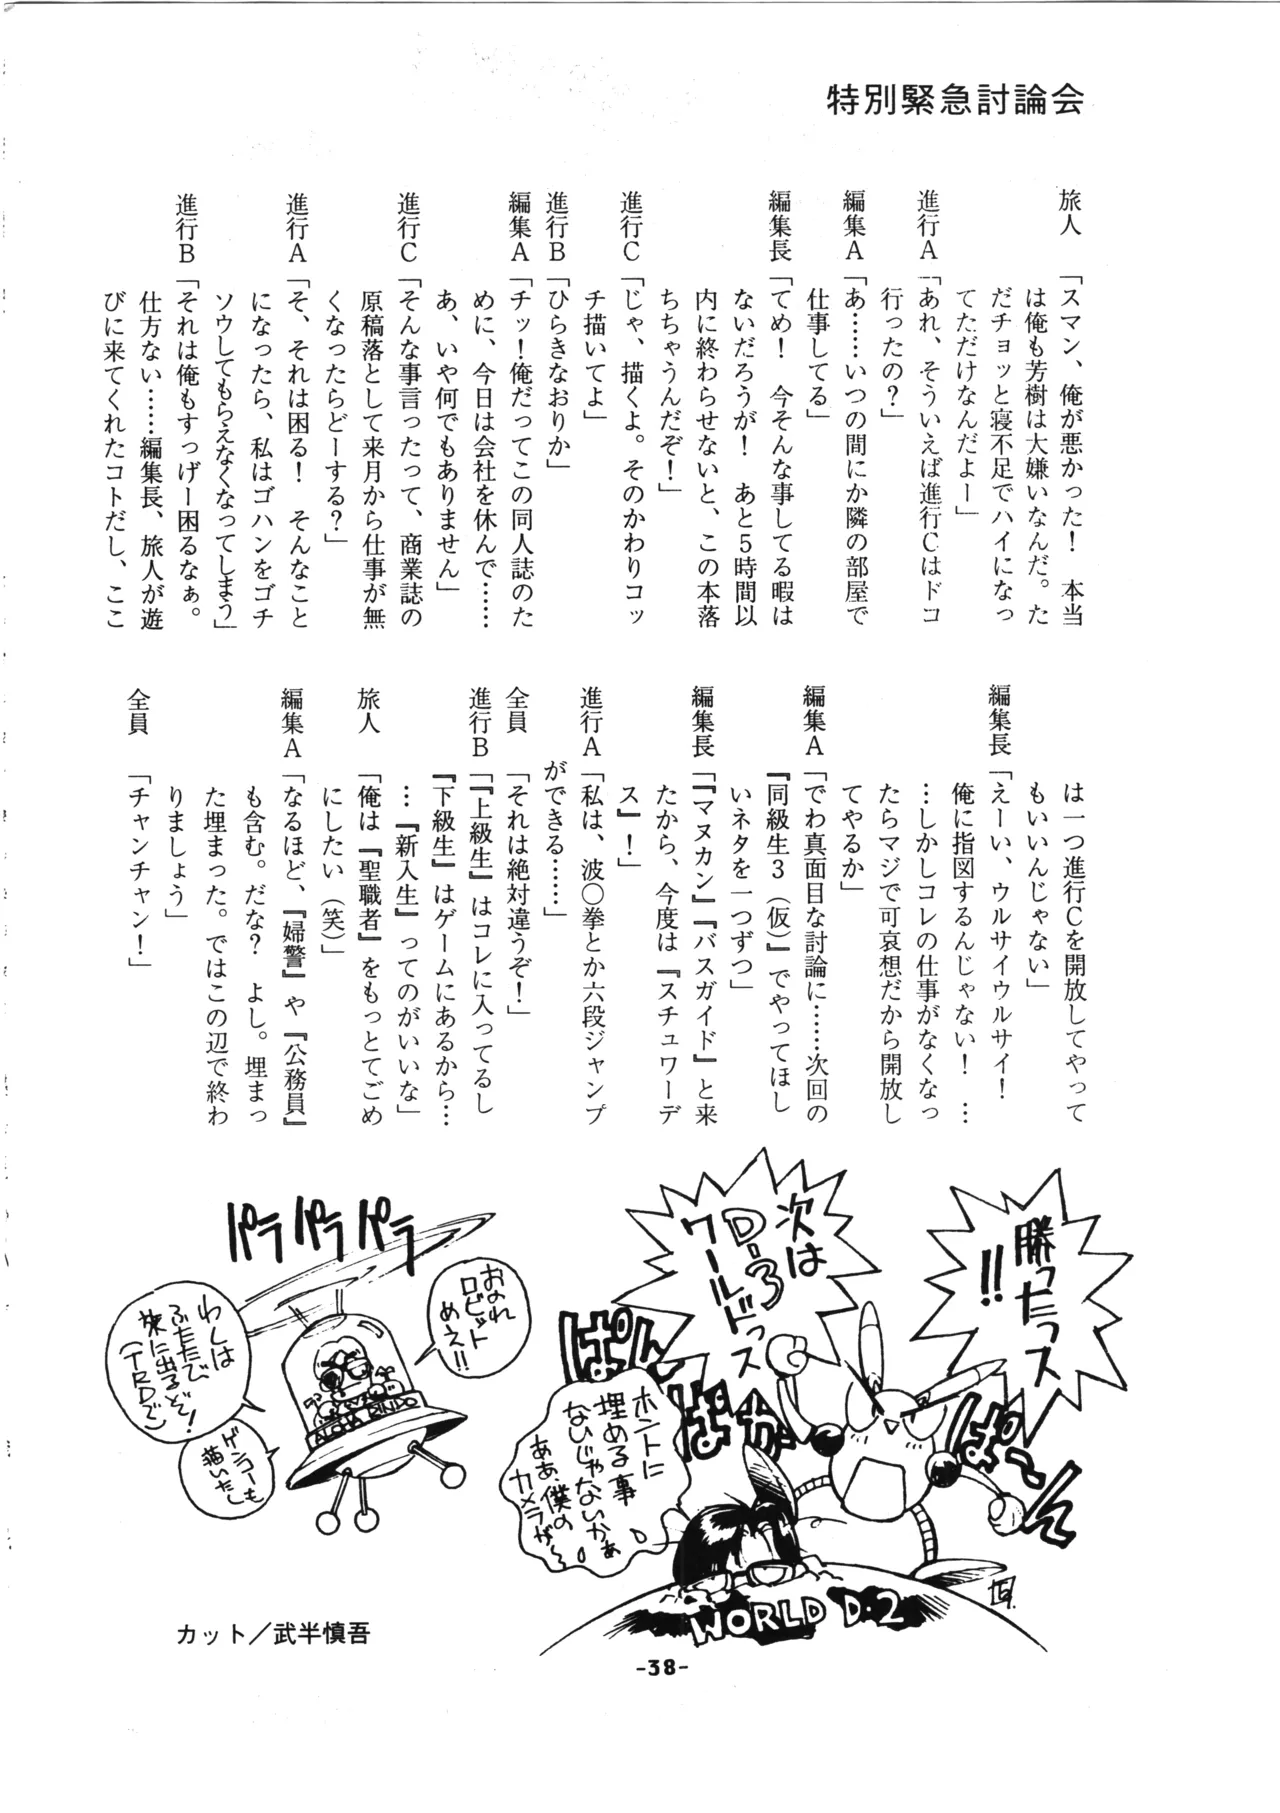 特別緊急討論会
旅人　「スマン、俺が悪かった！　本当
は俺も芳樹は大嫌いなんだ。た
だチョッと寝不足でハイになっ
てただけなんだよー」
進行Ａ「あれ、そういえば進行Ｃはドコ
行ったの？」
編集Ａ「あ……いつの間にか隣の部屋で
仕事してる」
編集長「てめ！　今そんな事してる暇は
ないだろうが！　あと５時間以
内に終わらせないと、この本落
ちちゃうんだぞ！」
進行Ｃ「じゃ、描くよ。そのかわりコッ
チ描いてよ」
進行Ｂ「ひらきなおりか」
編集Ａ「チッ！俺だってこの同人誌のた
めに、今日は会社を休んで……
あ、いや何でもありません」
進行Ｃ「そんな事言ったって、商業誌の
原稿落として来月から仕事が無
くなったらどーする？」
進行Ａ「そ、それは困る！　そんなこと
になったら、私はゴハンをゴチ
ソウしてもらえなくなってしまう」
進行Ｂ「それは俺もすっげー困るなぁ。
仕方ない……編集長、旅人が遊
びに来てくれたコトだし、ここ
は一つ進行Ｃを開放してやって
もいいんじゃない」
編集長「えーい、ウルサイウルサイ！
俺に指図するんじゃない！　…
…しかしコレの仕事がなくなっ
たらマジで可哀想だから開放し
てやるか」
編集Ａ「でわ真面目な討論に……次回の
『同級生３（仮）』でやってほし
いネタを一つずつ」
編集長「『マヌカン』『バスガイド』と来
たから、今度は『スチュワーデ
ス』！」
進行Ａ「私は、波○拳とか六段ジャンプ
ができる……」
全員　「それは絶対違うぞ！」
進行Ｂ「『上級生』はコレに入ってるし
『下級生』はゲームにあるから…
…『新入生』ってのがいいな」
旅人　「俺は『聖職者』をもっとてごめ
にしたい（笑）」
編集Ａ「なるほど、『婦警』や『公務員』
も含む。だな？　よし。埋まっ
た埋まった。ではこの辺で終わ
りましょう」
全員　「チャンチャン！」
勝ったっス
!!
次は
D-3
ワールドっス
ぱーん
ぱん
ばか
ホントに
埋める事
ないじゃないかぁ
ああ、僕の
カメラが〜
WORLD D・2
パラパラパラ
おのれ
ロビット
めえ!!
わしは
ふたたび
旅に出るぞ!
(TRDで)
ゲンラーも
描いたし
ALOHA RINDO
カット／武半慎吾
-38-